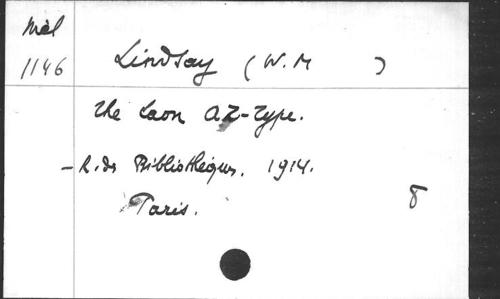 Mél
1146
Lindsay (W. M )
The Laon AZ-Type.
- R. des Bibliothèques. 1914.
Paris.
8